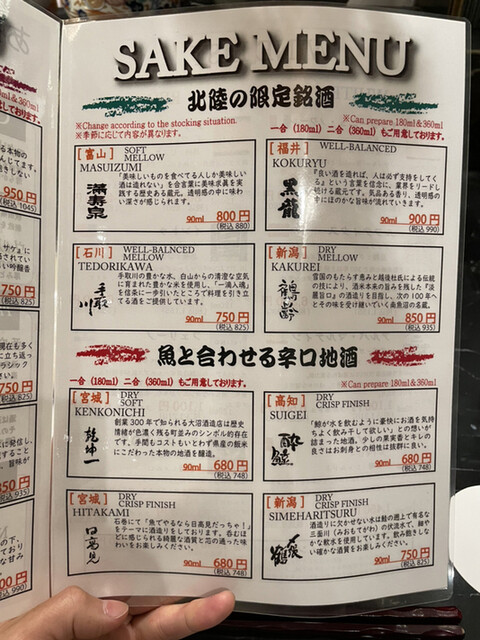 SAKE MENU
北陸の限定銘酒
※Change according to the stocking situation.
※季節に応じて内容が異なります。
※Can prepare 180ml&360ml
一合 (180ml) 二合 (360ml) もご用意しております。
[富山] SOFT
MELLOW
MASUIZUMI
満寿泉
「美味しいものを食べてる人しか美味しい
酒は造れない」を合言葉に美味求真を
実践する歴史ある蔵元。透明感の中に味
わい深さが感じられます。
90ml 800円
(税込 880)
[福井] WELL-BALANCED
KOKURYU
黒龍
「良い酒を造れば、人は必ず支持をしてく
る」という言葉を信念に、業界をリードし
続ける蔵元です。気品ある香り。透明感の
中にほのかな旨味が流れていきます。
90ml 900円
(税込 990)
[石川] WELL-BALNCED
MELLOW
TEDORIKAWA
手取川
手取川の豊かな水、白山からの清澄な空気
に育まれた豊かな米を使用し、「一滴入魂」
を信条に一歩引いたところで料理を引き立
てる酒をご提供しています。
90ml 750円
(税込 825)
[新潟] DRY
MELLOW
KAKUREI
鶴齢
雪国のもたらす恵みと越後杜氏による伝統
の技により、酒米本来の旨みを残した『淡
麗旨口』の酒造りを目指し、次の100年へ
とその味を受け継いでいく南魚沼の名蔵。
90ml 850円
(税込 935)
魚と合わせる辛口地酒
一合 (180ml) 二合 (360ml) もご用意しております。
※Can prepare 180ml&360ml
[宮城] DRY
SOFT
KENKONICHI
乾坤一
創業300年で知られる大沼酒造店は歴史
情緒が色濃く残る町並みのシンボル的存在
です。手間もコストもいとわず県産の飯米
にこだわった本物の地酒を醸造。
90ml 680円
(税込 748)
[高知] DRY
CRISP FINISH
SUIGEI
酔鯨
「鯨が水を飲むように豪快にお酒を気持
ちよく飲み干して欲しい」との想いが
詰まった地酒。少しの果実香とキレの
良さはお刺身との相性は抜群に良い。
90ml 680円
(税込 748)
[宮城] DRY
CRISP FINISH
HITAKAMI
日高見
石巻にて「魚でやるなら日高見だっちゃ!」
をテーマに酒造りをしております。呑むほ
どに感じられる綺麗な酒質と芯の通った味
わいをお楽しみください。
90ml 680円
(税込 748)
[新潟] DRY
CRISP FINISH
SIMEHARITSURU
〆張鶴
酒造りに欠かせない水は鮭の遡上で有名な
三面川(みおもてがわ)の伏流水で、緩や
かな軟水を使用しています。飲み飽きしな
い確かな酒質をお楽しみください。
90ml 750円
(税込 825)